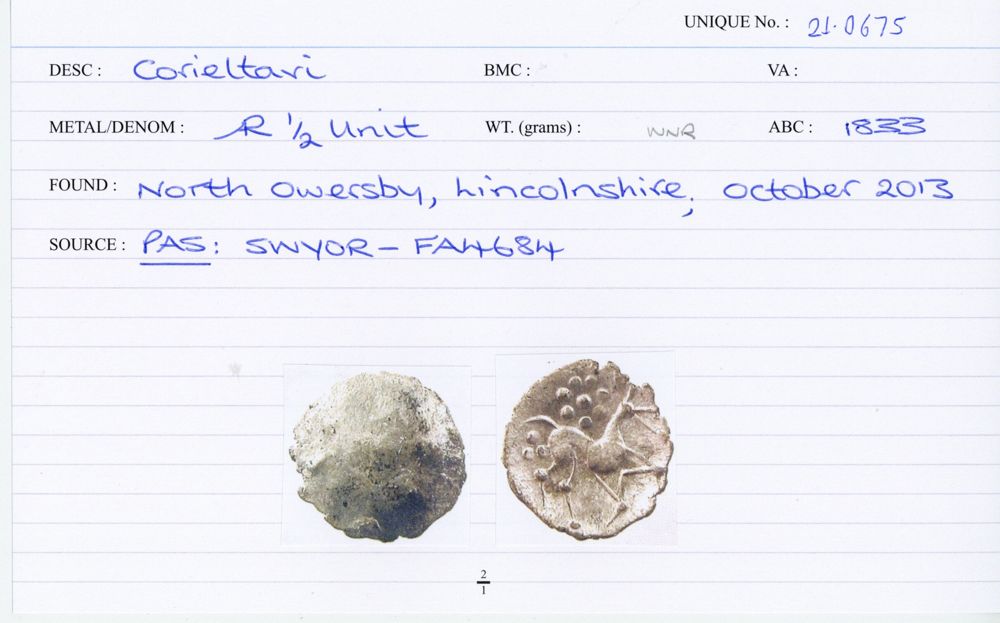 UNIQUE No. : 21.0675
DESC : Corieltavi BMC : VA :
METAL/DENOM : Æ R ½ Unit WT. (grams) : WNR ABC : 1833
FOUND : North Owersby, Lincolnshire, October 2013
SOURCE : PAS: SWYOR-FA4684
2
1